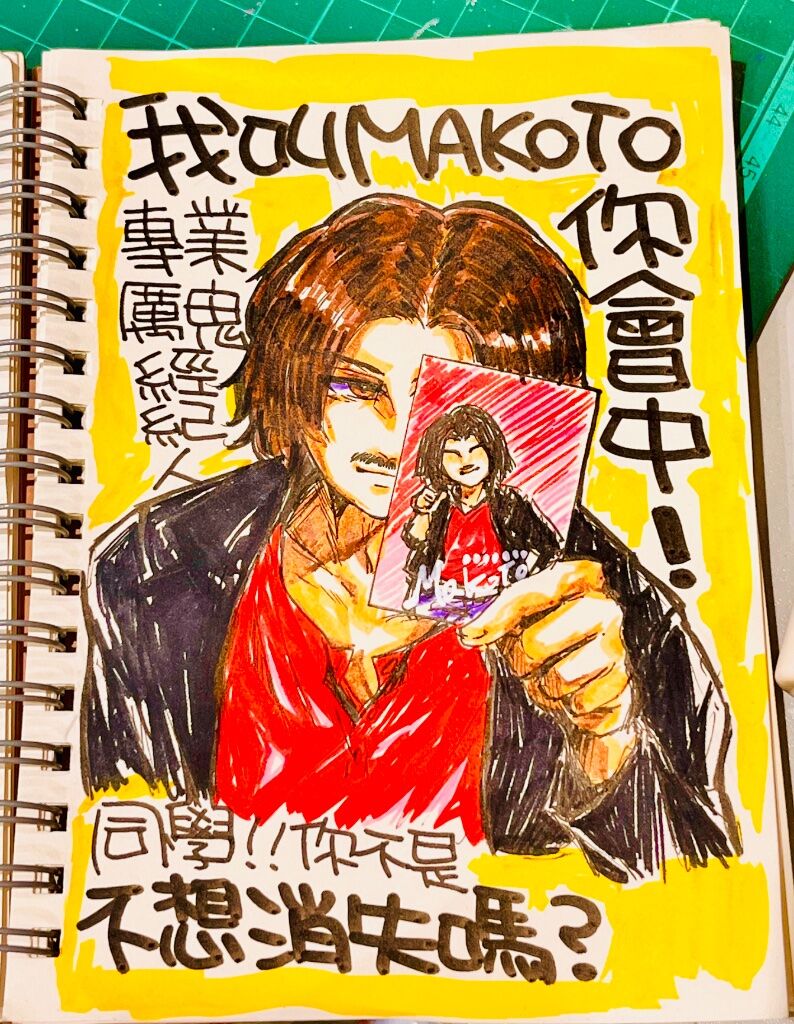 我OLIMAKOTO
你會中!
專業
厲鬼
經紀
人
Makoto
同學!!你不是
不想消失嗎?
44
45